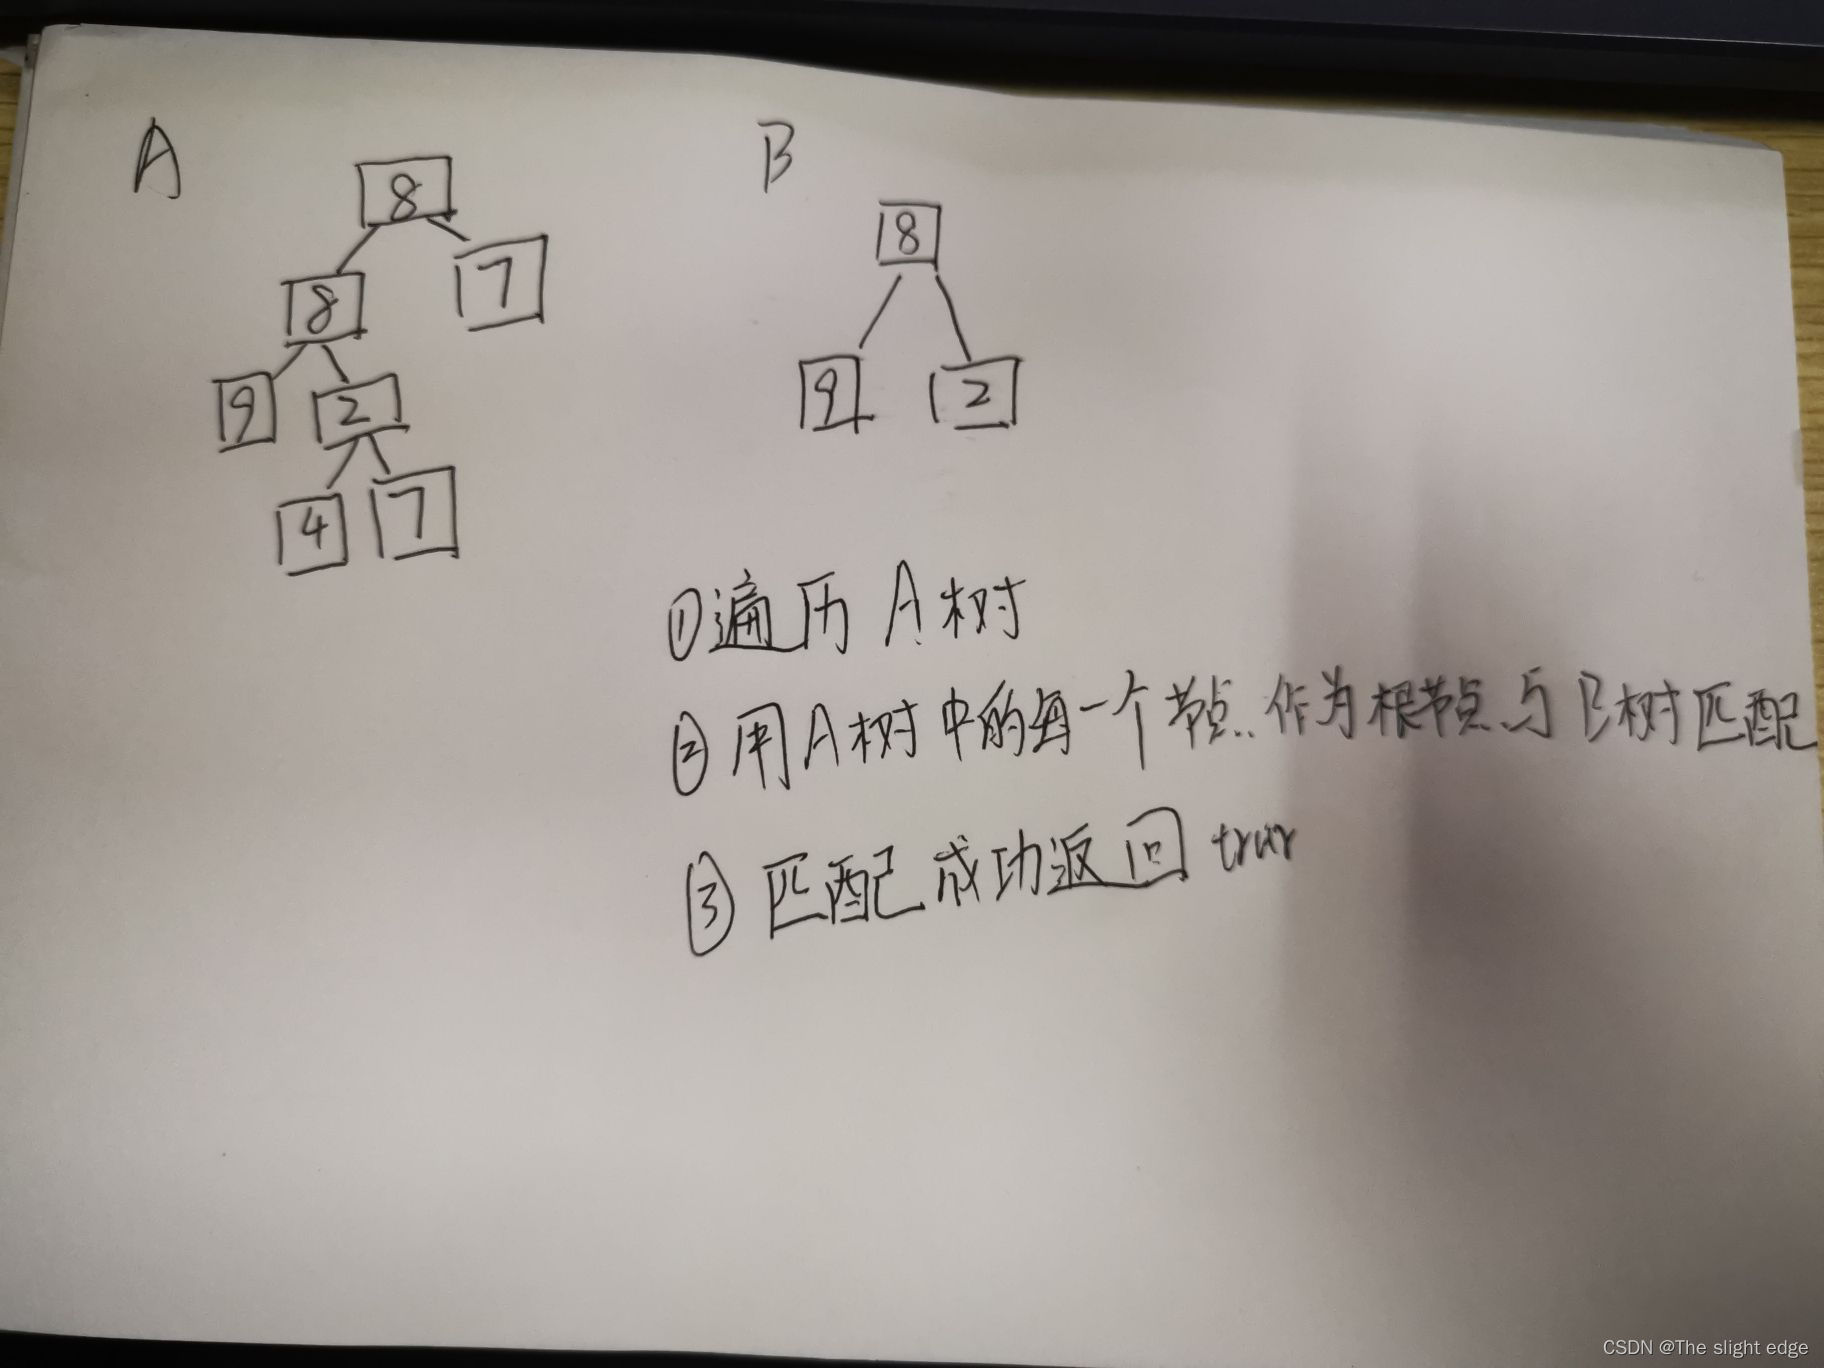 A
B
8
8
8
7
9
2
9
2
4
7
①遍历 A树
②用A树中的每一个节点.作为根节点与B树匹配
③匹配成功返回 true
CSDN @The slight edge